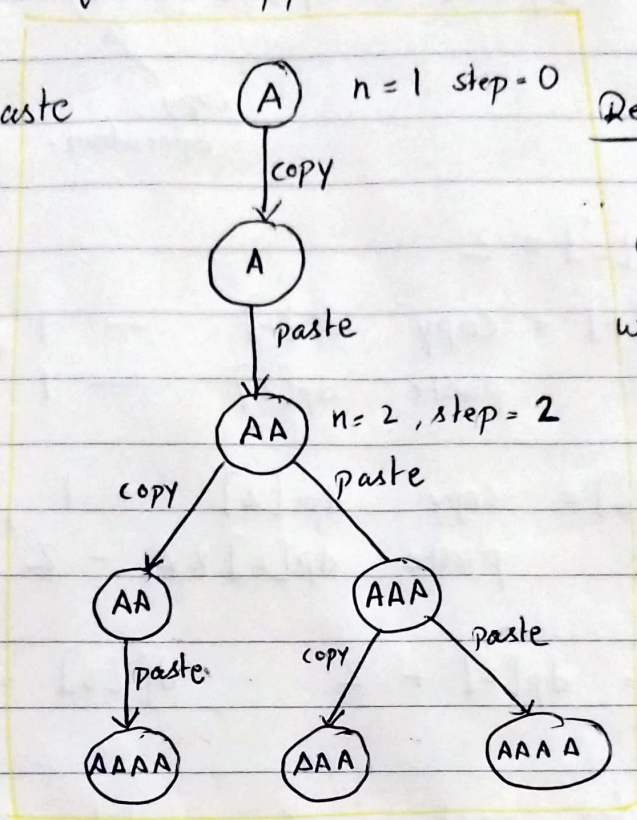 A n = 1 step = 0
aste
De
copy
A
paste
w
AA n = 2 , step = 2
copy paste
AA AAA
paste copy paste
AAAA AAA AAAA